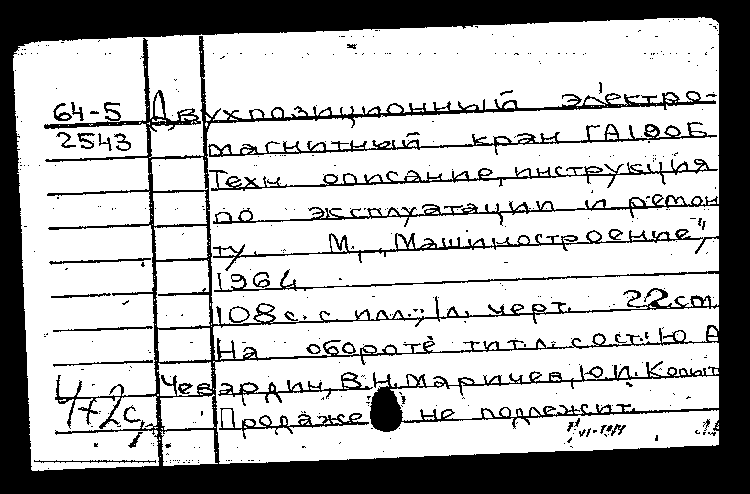 64-5 Двухпозиционный электро-
2543 магнитный кран ГА190Б
Техн. описание, инструкция
по эксплуатации и ремон
ту. М., "Машиностроение",
1964.
108 с. с илл.; 1 л. черт. 22 cm
На обороте тит. л. сост.: Ю А
Чевардин, В.Н. Маричев, Ю.И. Копыт
4+2с Продаже не подлежит.